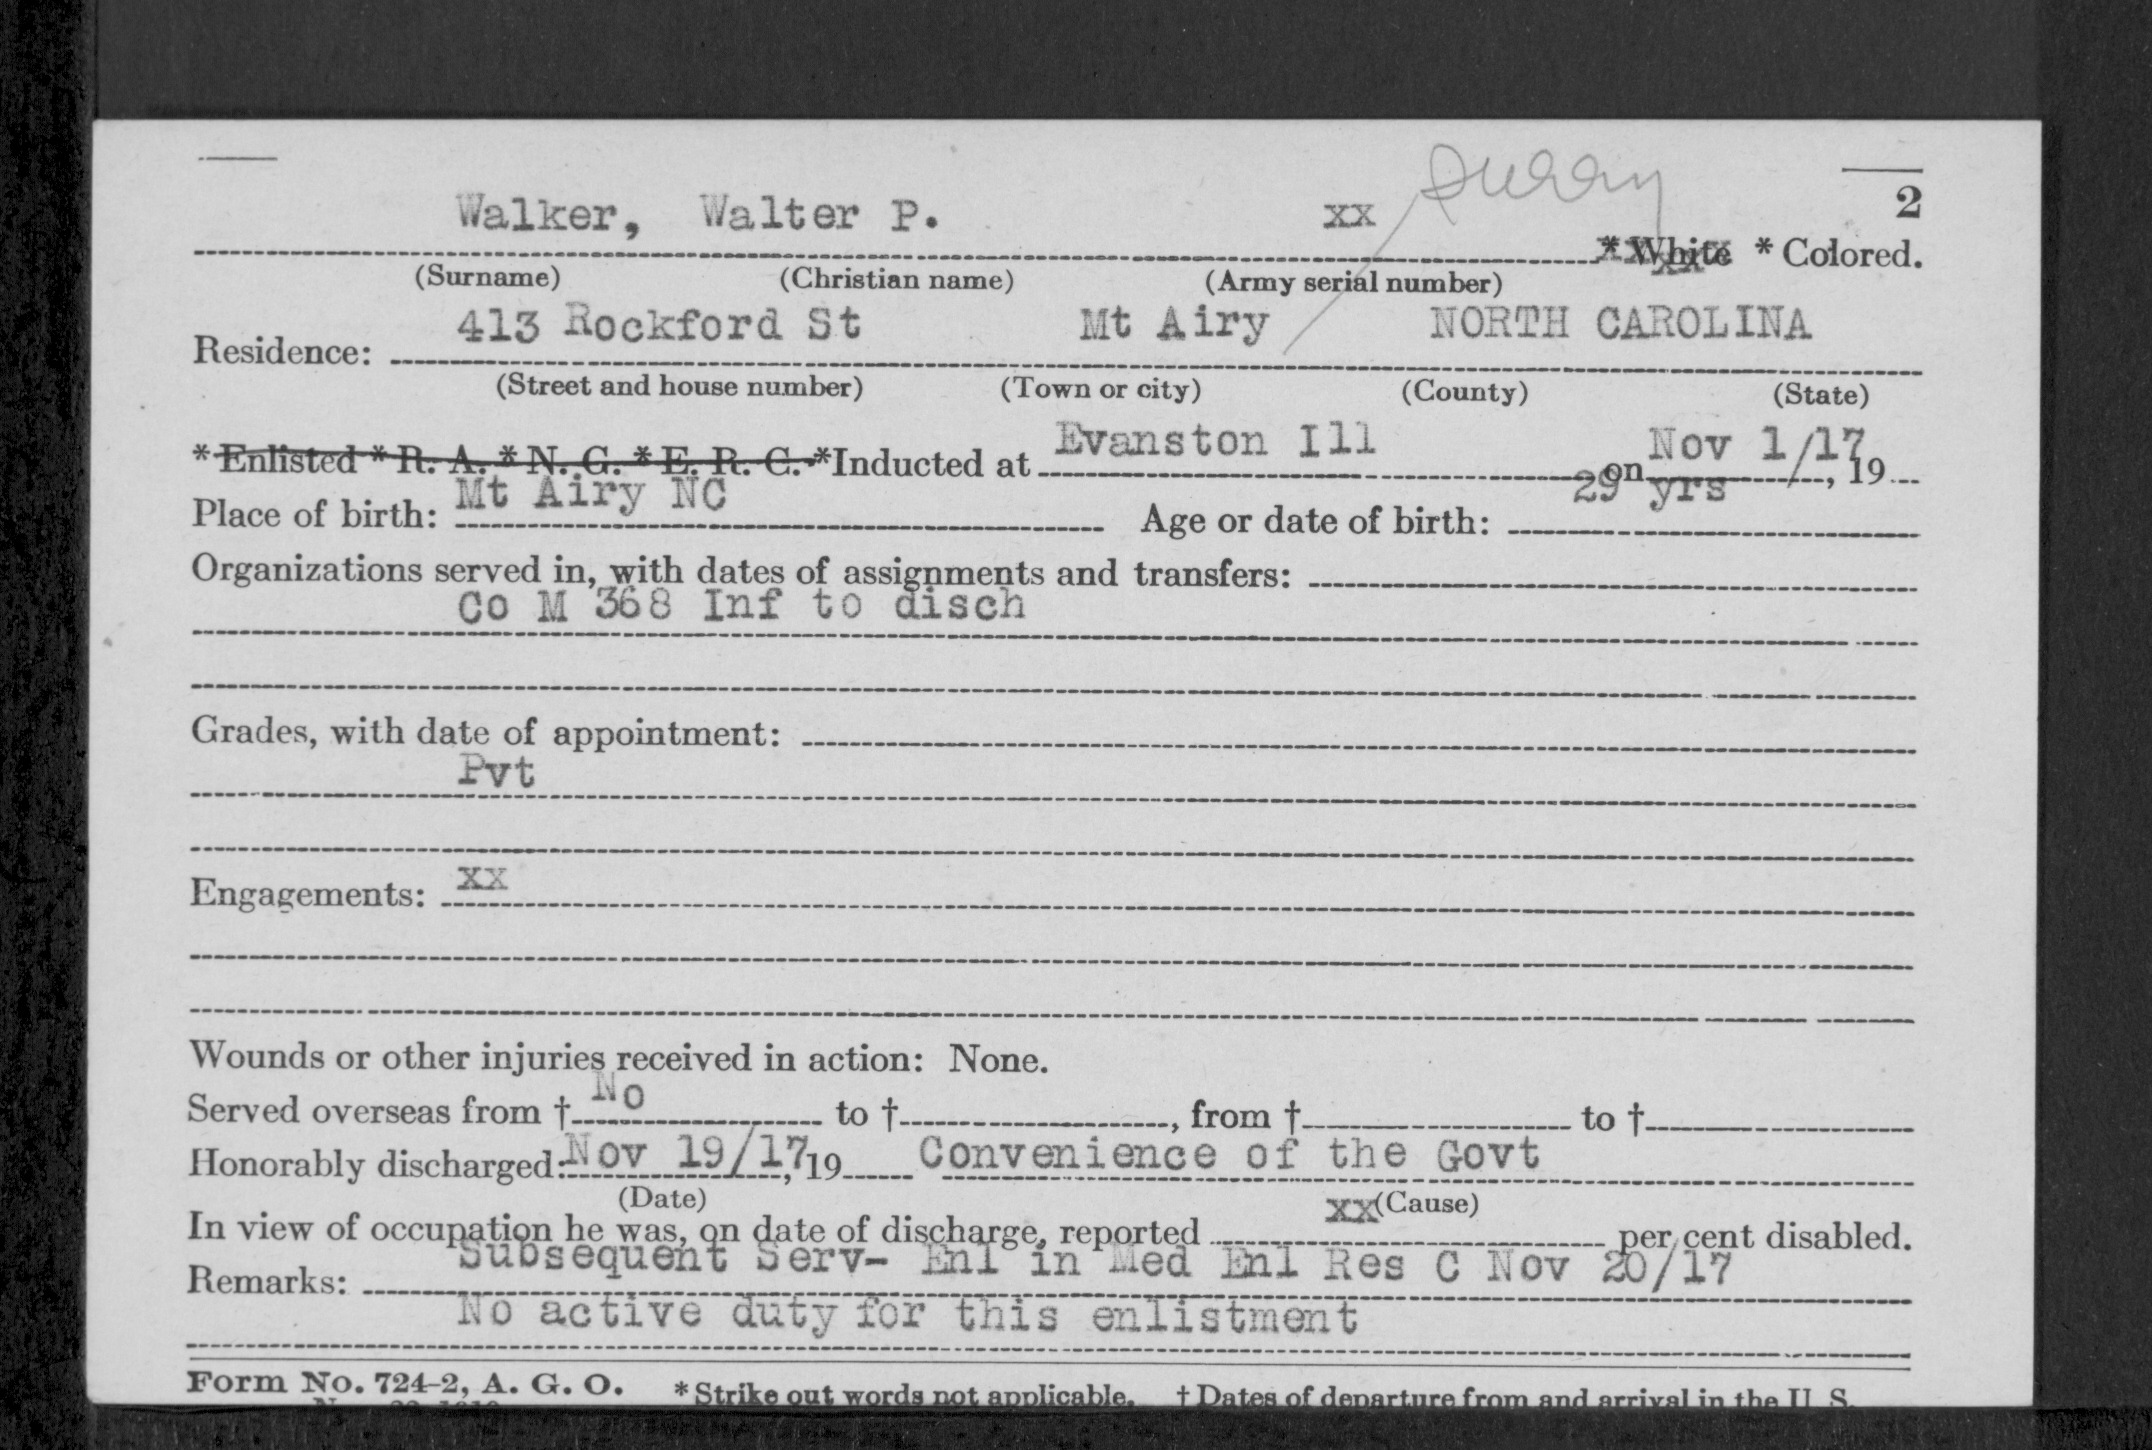 Surry
2
Walker, Walter P. xx
* White * Colored.
(Surname) (Christian name) (Army serial number)
413 Rockford St Mt Airy NORTH CAROLINA
Residence:
(Street and house number) (Town or city) (County) (State)
* Enlisted * R. A. * N. G. * E. R. C. * Inducted at Evanston Ill on Nov 1/17, 19
Place of birth: Mt Airy NC Age or date of birth: 29 yrs
Organizations served in, with dates of assignments and transfers:
Co M 368 Inf to disch
Grades, with date of appointment:
Pvt
Engagements: xx
Wounds or other injuries received in action: None.
Served overseas from † No to †, from † to †
Honorably discharged: Nov 19/17, 19 Convenience of the Govt
(Date) (Cause)
In view of occupation he was, on date of discharge, reported xx per cent disabled.
Remarks: Subsequent Serv- Enl in Med Enl Res C Nov 20/17
No active duty for this enlistment
Form No. 724-2, A. G. O. * Strike out words not applicable. † Dates of departure from and arrival in the U. S.